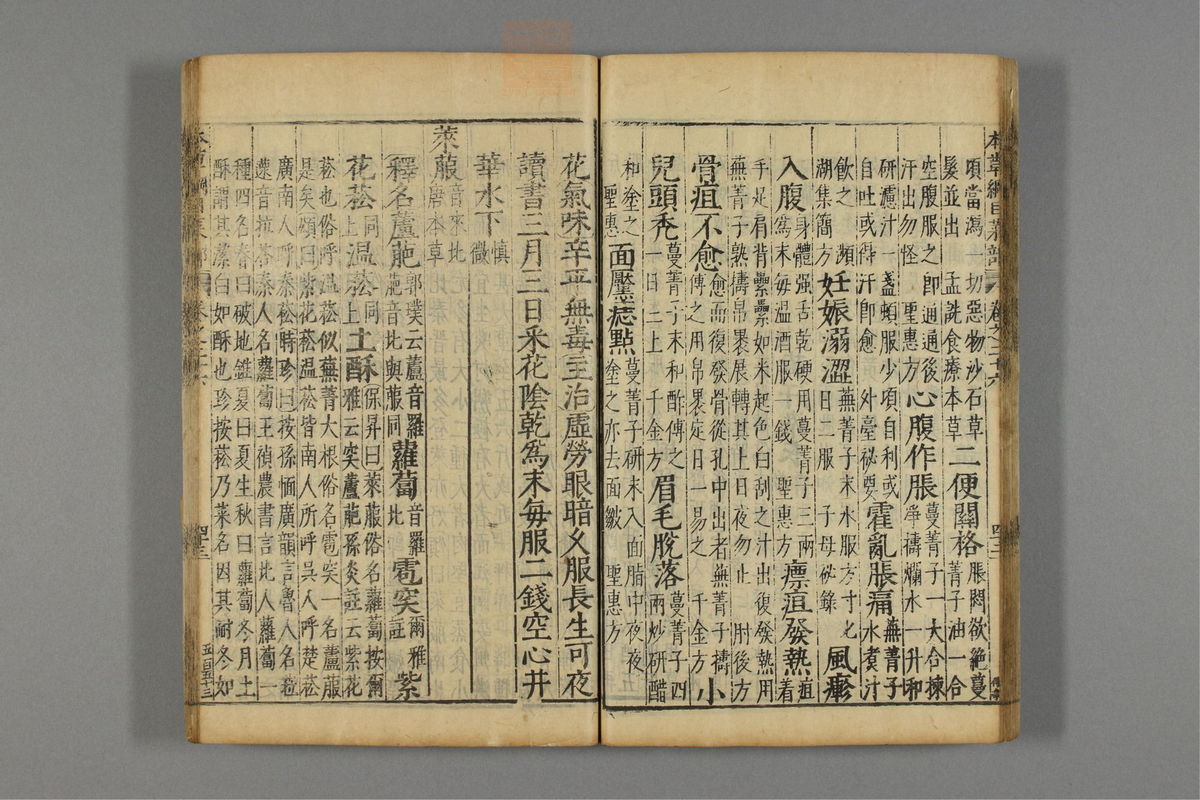 本草綱目菜部 卷之二十六 四三
頃當瀉一切惡物沙石草
髮並出 孟詵食療本草 二便關格 脹悶欲絶蔓菁子油一合
空腹服之即通通後
汗出勿怪 聖惠方 心腹作脹 蔓菁子一大合揀淨擣爛水一升和
研濾汁一盞頓服少頃自利或
自吐或得汗即愈 外臺祕要 霍亂脹痛 蕪菁子水煑汁
飲之 瀕
湖集簡方 妊娠溺澀 蕪菁子末水服方寸匕日二服 子母祕錄 風疹
入腹 身體强舌乾硬用蔓菁子三兩爲末每温酒服一錢 聖惠方 瘭疽發熱 疽着
手足肩背纍纍如米起色白刮之汁出復發熱用
蕪菁子熟擣帛裹展轉其上日夜勿止 肘後方
骨疽不愈 愈而復發骨從孔中出者蕪菁子擣傅之用帛裹定日一易之 千金方 小
兒頭禿 蔓菁子末和酢傅之一日三上 千金方 眉毛脫落 蔓菁子四兩炒研醋
和塗之
聖惠 面䵟痣點 蔓菁子研末入面脂中夜夜塗之亦去面皺 聖惠方
花氣味辛平無毒主治虛勞眼暗久服長生可夜
讀書三月三日采花陰乾爲末每服二錢空心井
華水下 慎微
萊菔 音來北 唐本草
釋名蘆萉 郭璞云蘆音羅萉音北與菔同 蘿蔔 音羅北 雹突 爾雅註 紫
花菘 同上 温菘 同上 土酥 保昇曰萊菔俗名蘿蔔按爾雅云突蘆萉孫炎註云紫花
菘也俗呼温菘似蕪菁大根俗名雹突一名蘆菔
是矣頌曰紫花菘温菘皆南人所呼吳人呼楚菘
廣南人呼秦菘時珍曰按孫愐廣韻言魯人名菈
䔖音拉荅秦人名蘿蔔王禎農書言北人蘿蔔一
種四名春曰破地錐夏曰夏生秋曰蘿蔔冬月土
酥謂其潔白如酥也珍按菘乃菜名因其耐冬如
四三
五百五十三